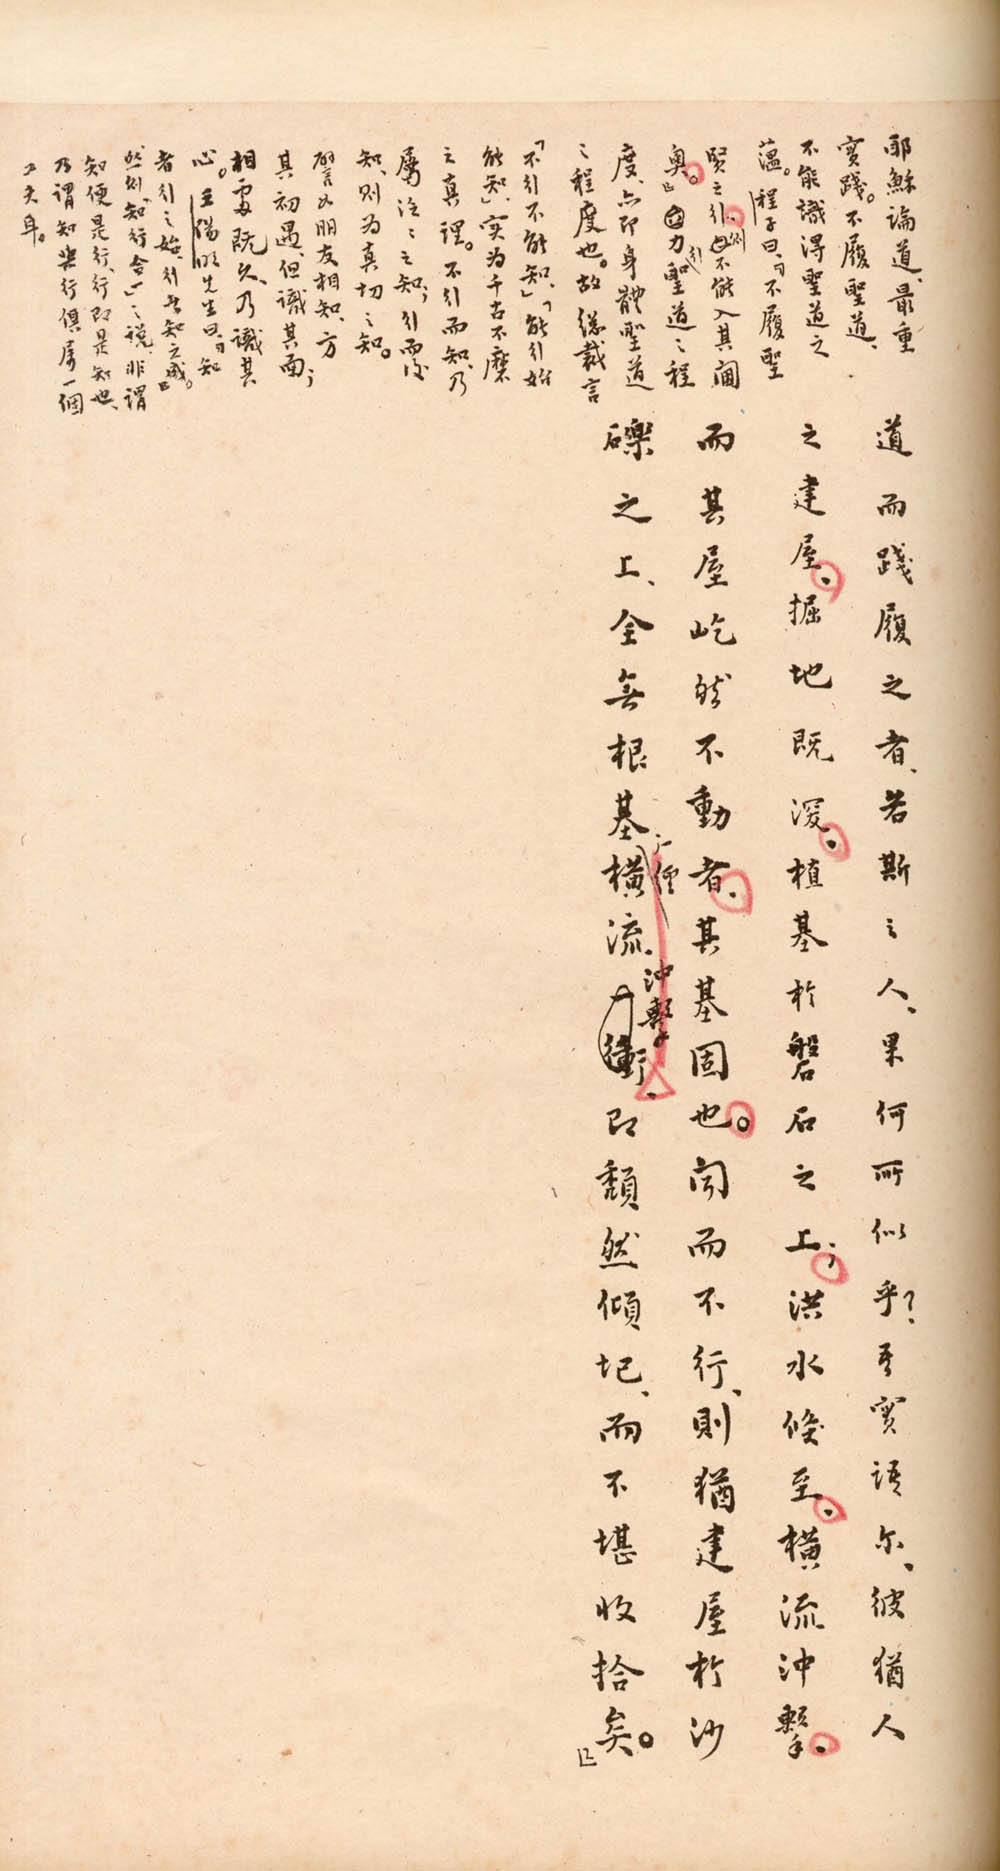 耶穌論道、最重
實踐。不履聖道、
不能識得聖道之
蘊。程子曰、「不履聖
賢之行、則不能入其閫
奧。」力行聖道之程
度、亦即身體聖道
之程度也。故總裁言
「不行不能知」、「能行始
能知」、实为千古不磨
之真理。不行而知、乃
屬泛泛之知；行而後
知、则为真切之知。
譬如朋友相知、方
其初遇、但識其面；
相處既久、乃識其
心。王陽明先生曰、「知
者行之始、行者知之成。」
然则「知行合一」之说、非謂
知便是行、行即是知也、
乃謂知與行俱屬一個
工夫耳。
道而踐履之者、若斯之人、果何所似乎？吾實語尔、彼猶人
之建屋、掘地既深、植基於磐石之上；洪水倏至、橫流沖擊、
而其屋屹然不動者、其基固也。聞而不行、則猶建屋於沙
礫之上、全無根基、一經橫流沖擊、即頹然傾圮、而不堪收拾矣。」